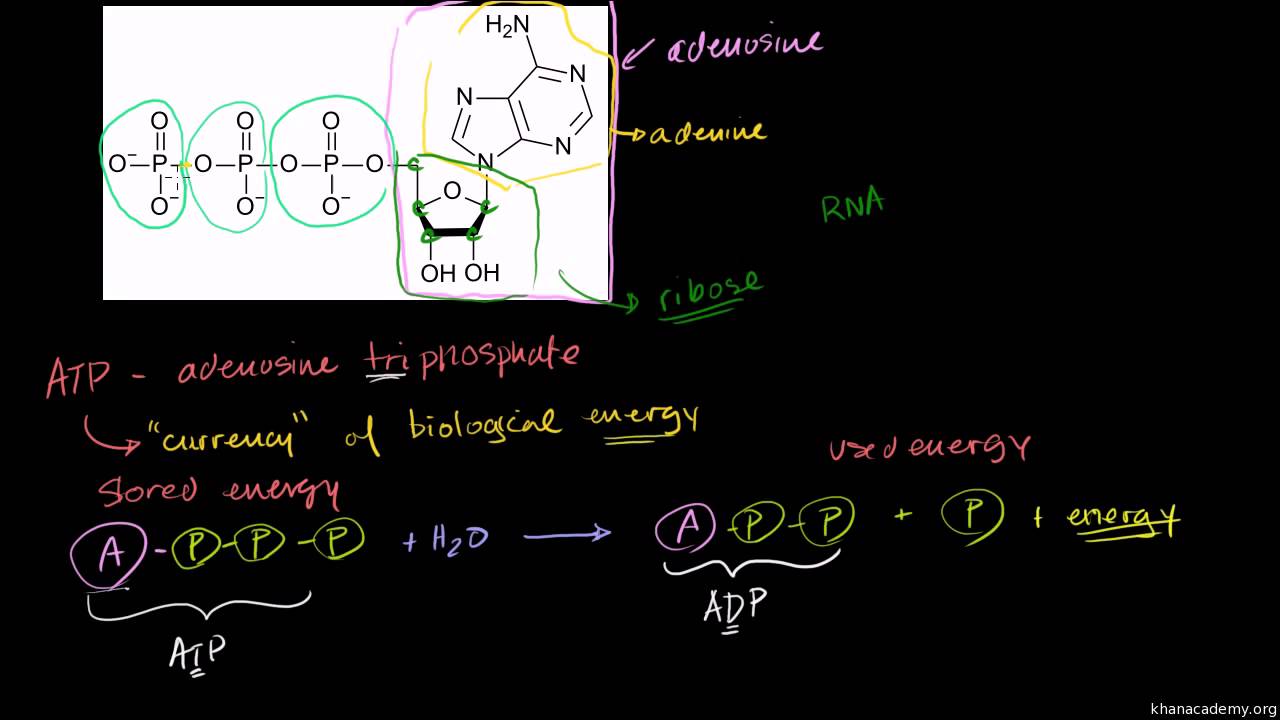 H₂N
N
N
N
N
adenosine
adenine
O O O
O⁻ P O P O P O C
O⁻ O⁻ O⁻
O
C C
C C
OH OH
RNA
ribose
ATP - adenosine triphosphate
"currency" of biological energy
used energy
stored energy
A - P - P - P + H₂O → A - P - P + P + energy
ATP
ADP
khanacademy.org